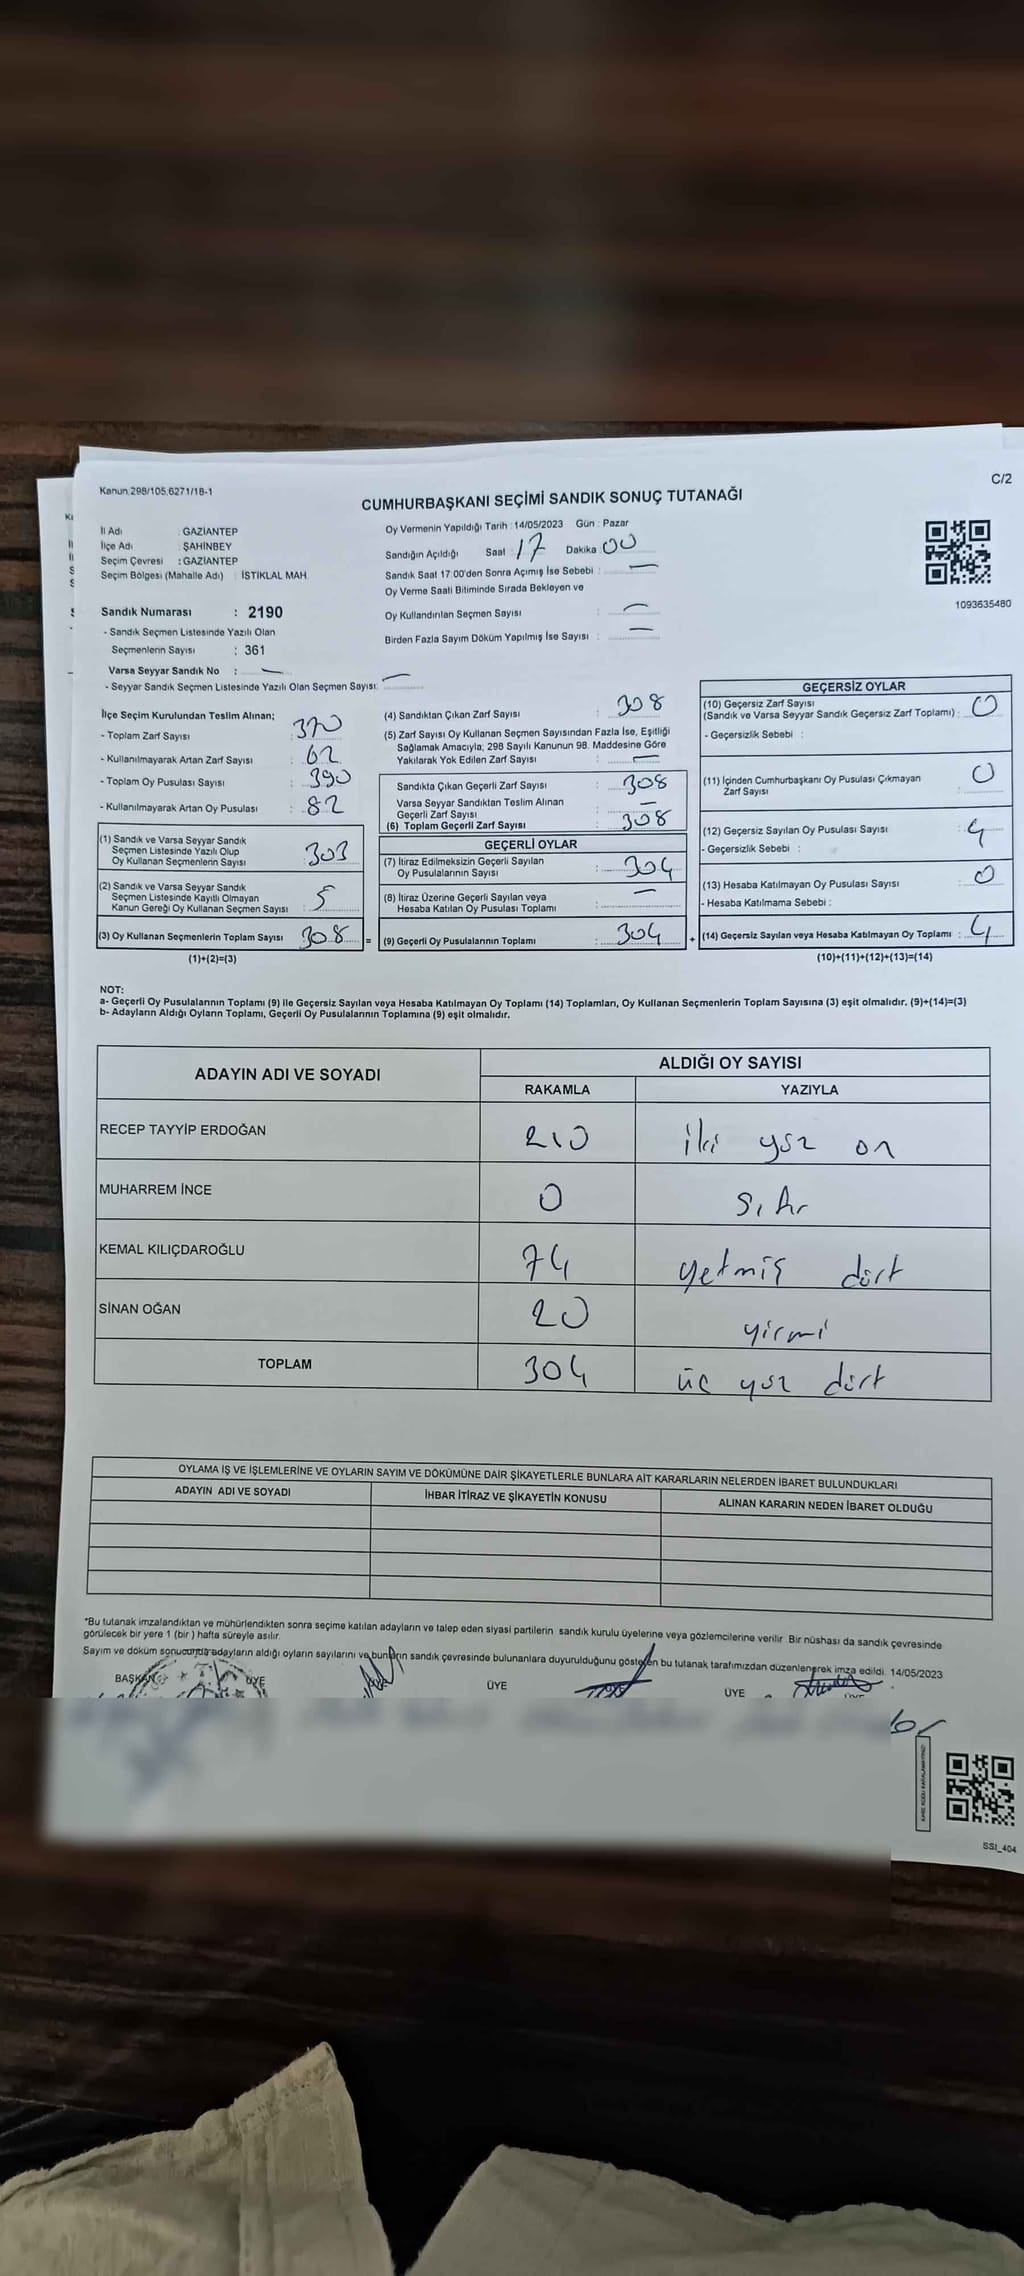 Kanun.298/105.6271/18-1
C/2
CUMHURBAŞKANI SEÇİMİ SANDIK SONUÇ TUTANAĞI
İl Adı : GAZİANTEP
İlçe Adı : ŞAHİNBEY
Seçim Çevresi : GAZİANTEP
Seçim Bölgesi (Mahalle Adı) : İSTİKLAL MAH.
Sandık Numarası : 2190
- Sandık Seçmen Listesinde Yazılı Olan
Seçmenlerin Sayısı : 361
Varsa Seyyar Sandık No : —
- Seyyar Sandık Seçmen Listesinde Yazılı Olan Seçmen Sayısı: —
Oy Vermenin Yapıldığı Tarih : 14/05/2023 Gün : Pazar
Sandığın Açıldığı Saat : 17 Dakika : 00
Sandık Saat 17:00'den Sonra Açımış İse Sebebi : —
Oy Verme Saati Bitiminde Sırada Bekleyen ve
Oy Kullandırılan Seçmen Sayısı : —
Birden Fazla Sayım Döküm Yapılmış İse Sayısı : —
1093635480
İlçe Seçim Kurulundan Teslim Alınan;
- Toplam Zarf Sayısı : 370
- Kullanılmayarak Artan Zarf Sayısı : 62
- Toplam Oy Pusulası Sayısı : 390
- Kullanılmayarak Artan Oy Pusulası : 82
(1) Sandık ve Varsa Seyyar Sandık
Seçmen Listesinde Yazılı Olup
Oy Kullanan Seçmenlerin Sayısı : 303
(2) Sandık ve Varsa Seyyar Sandık
Seçmen Listesinde Kayıtlı Olmayan
Kanun Gereği Oy Kullanan Seçmen Sayısı : 5
(3) Oy Kullanan Seçmenlerin Toplam Sayısı 308
(1)+(2)=(3)
(4) Sandıktan Çıkan Zarf Sayısı : 308
(5) Zarf Sayısı Oy Kullanan Seçmen Sayısından Fazla İse, Eşitliği
Sağlamak Amacıyla; 298 Sayılı Kanunun 98. Maddesine Göre
Yakılarak Yok Edilen Zarf Sayısı : —
Sandıkta Çıkan Geçerli Zarf Sayısı : 308
Varsa Seyyar Sandıktan Teslim Alınan
Geçerli Zarf Sayısı : —
(6) Toplam Geçerli Zarf Sayısı : 308
GEÇERLİ OYLAR
(7) İtiraz Edilmeksizin Geçerli Sayılan
Oy Pusulalarının Sayısı : 304
(8) İtiraz Üzerine Geçerli Sayılan veya
Hesaba Katılan Oy Pusulası Toplamı : —
= (9) Geçerli Oy Pusulalarının Toplamı : 304 +
GEÇERSİZ OYLAR
(10) Geçersiz Zarf Sayısı
(Sandık ve Varsa Seyyar Sandık Geçersiz Zarf Toplamı) : 0
- Geçersizlik Sebebi :
(11) İçinden Cumhurbaşkanı Oy Pusulası Çıkmayan
Zarf Sayısı : 0
(12) Geçersiz Sayılan Oy Pusulası Sayısı : 4
- Geçersizlik Sebebi :
(13) Hesaba Katılmayan Oy Pusulası Sayısı : 0
- Hesaba Katılmama Sebebi :
(14) Geçersiz Sayılan veya Hesaba Katılmayan Oy Toplamı : 4
(10)+(11)+(12)+(13)=(14)
NOT:
a- Geçerli Oy Pusulalarının Toplamı (9) ile Geçersiz Sayılan veya Hesaba Katılmayan Oy Toplamı (14) Toplamları, Oy Kullanan Seçmenlerin Toplam Sayısına (3) eşit olmalıdır. (9)+(14)=(3)
b- Adayların Aldığı Oyların Toplamı, Geçerli Oy Pusulalarının Toplamına (9) eşit olmalıdır.
ADAYIN ADI VE SOYADI ALDIĞI OY SAYISI
RAKAMLA YAZIYLA
RECEP TAYYİP ERDOĞAN 210 iki yüz on
MUHARREM İNCE 0 sıfır
KEMAL KILIÇDAROĞLU 74 yetmiş dört
SİNAN OĞAN 20 yirmi
TOPLAM 304 üç yüz dört
OYLAMA İŞ VE İŞLEMLERİNE VE OYLARIN SAYIM VE DÖKÜMÜNE DAİR ŞİKAYETLERLE BUNLARA AİT KARARLARIN NELERDEN İBARET BULUNDUKLARI
ADAYIN ADI VE SOYADI İHBAR İTİRAZ VE ŞİKAYETİN KONUSU ALINAN KARARIN NEDEN İBARET OLDUĞU
*Bu tutanak imzalandıktan ve mühürlendikten sonra seçime katılan adayların ve talep eden siyasi partilerin sandık kurulu üyelerine veya gözlemcilerine verilir. Bir nüshası da sandık çevresinde
görülecek bir yere 1 (bir ) hafta süreyle asılır.
Sayım ve döküm sonucunda adayların aldığı oyların sayılarını ve bunların sandık çevresinde bulunanlara duyurulduğunu gösteren bu tutanak tarafımızdan düzenlenerek imza edildi. 14/05/2023
BAŞKAN ÜYE ÜYE ÜYE ÜYE
SSI_404